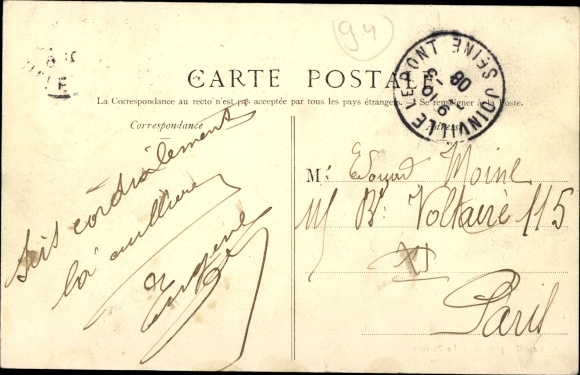 94
CARTE POSTALE
La Correspondance au recto n'est pas acceptée par tous les pays étrangers. - Se renseigner à la Poste.
JOINVILLE-LE-PONT SEINE
08
Correspondance
Adresse
cordialement
Eugène
Mr Edouard Moine
115 Bd Voltaire 115
XI
Paris